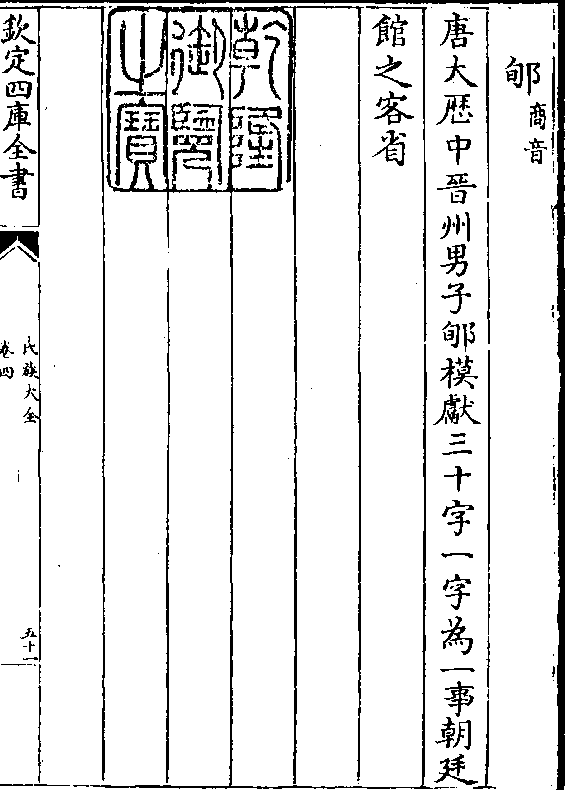 郇商音
唐大歴中晉州男子郇模獻三十字一字為一事朝廷
館之客省
乾隆御覽之寶
欽定四庫全書
氏族大全
卷四
五十一